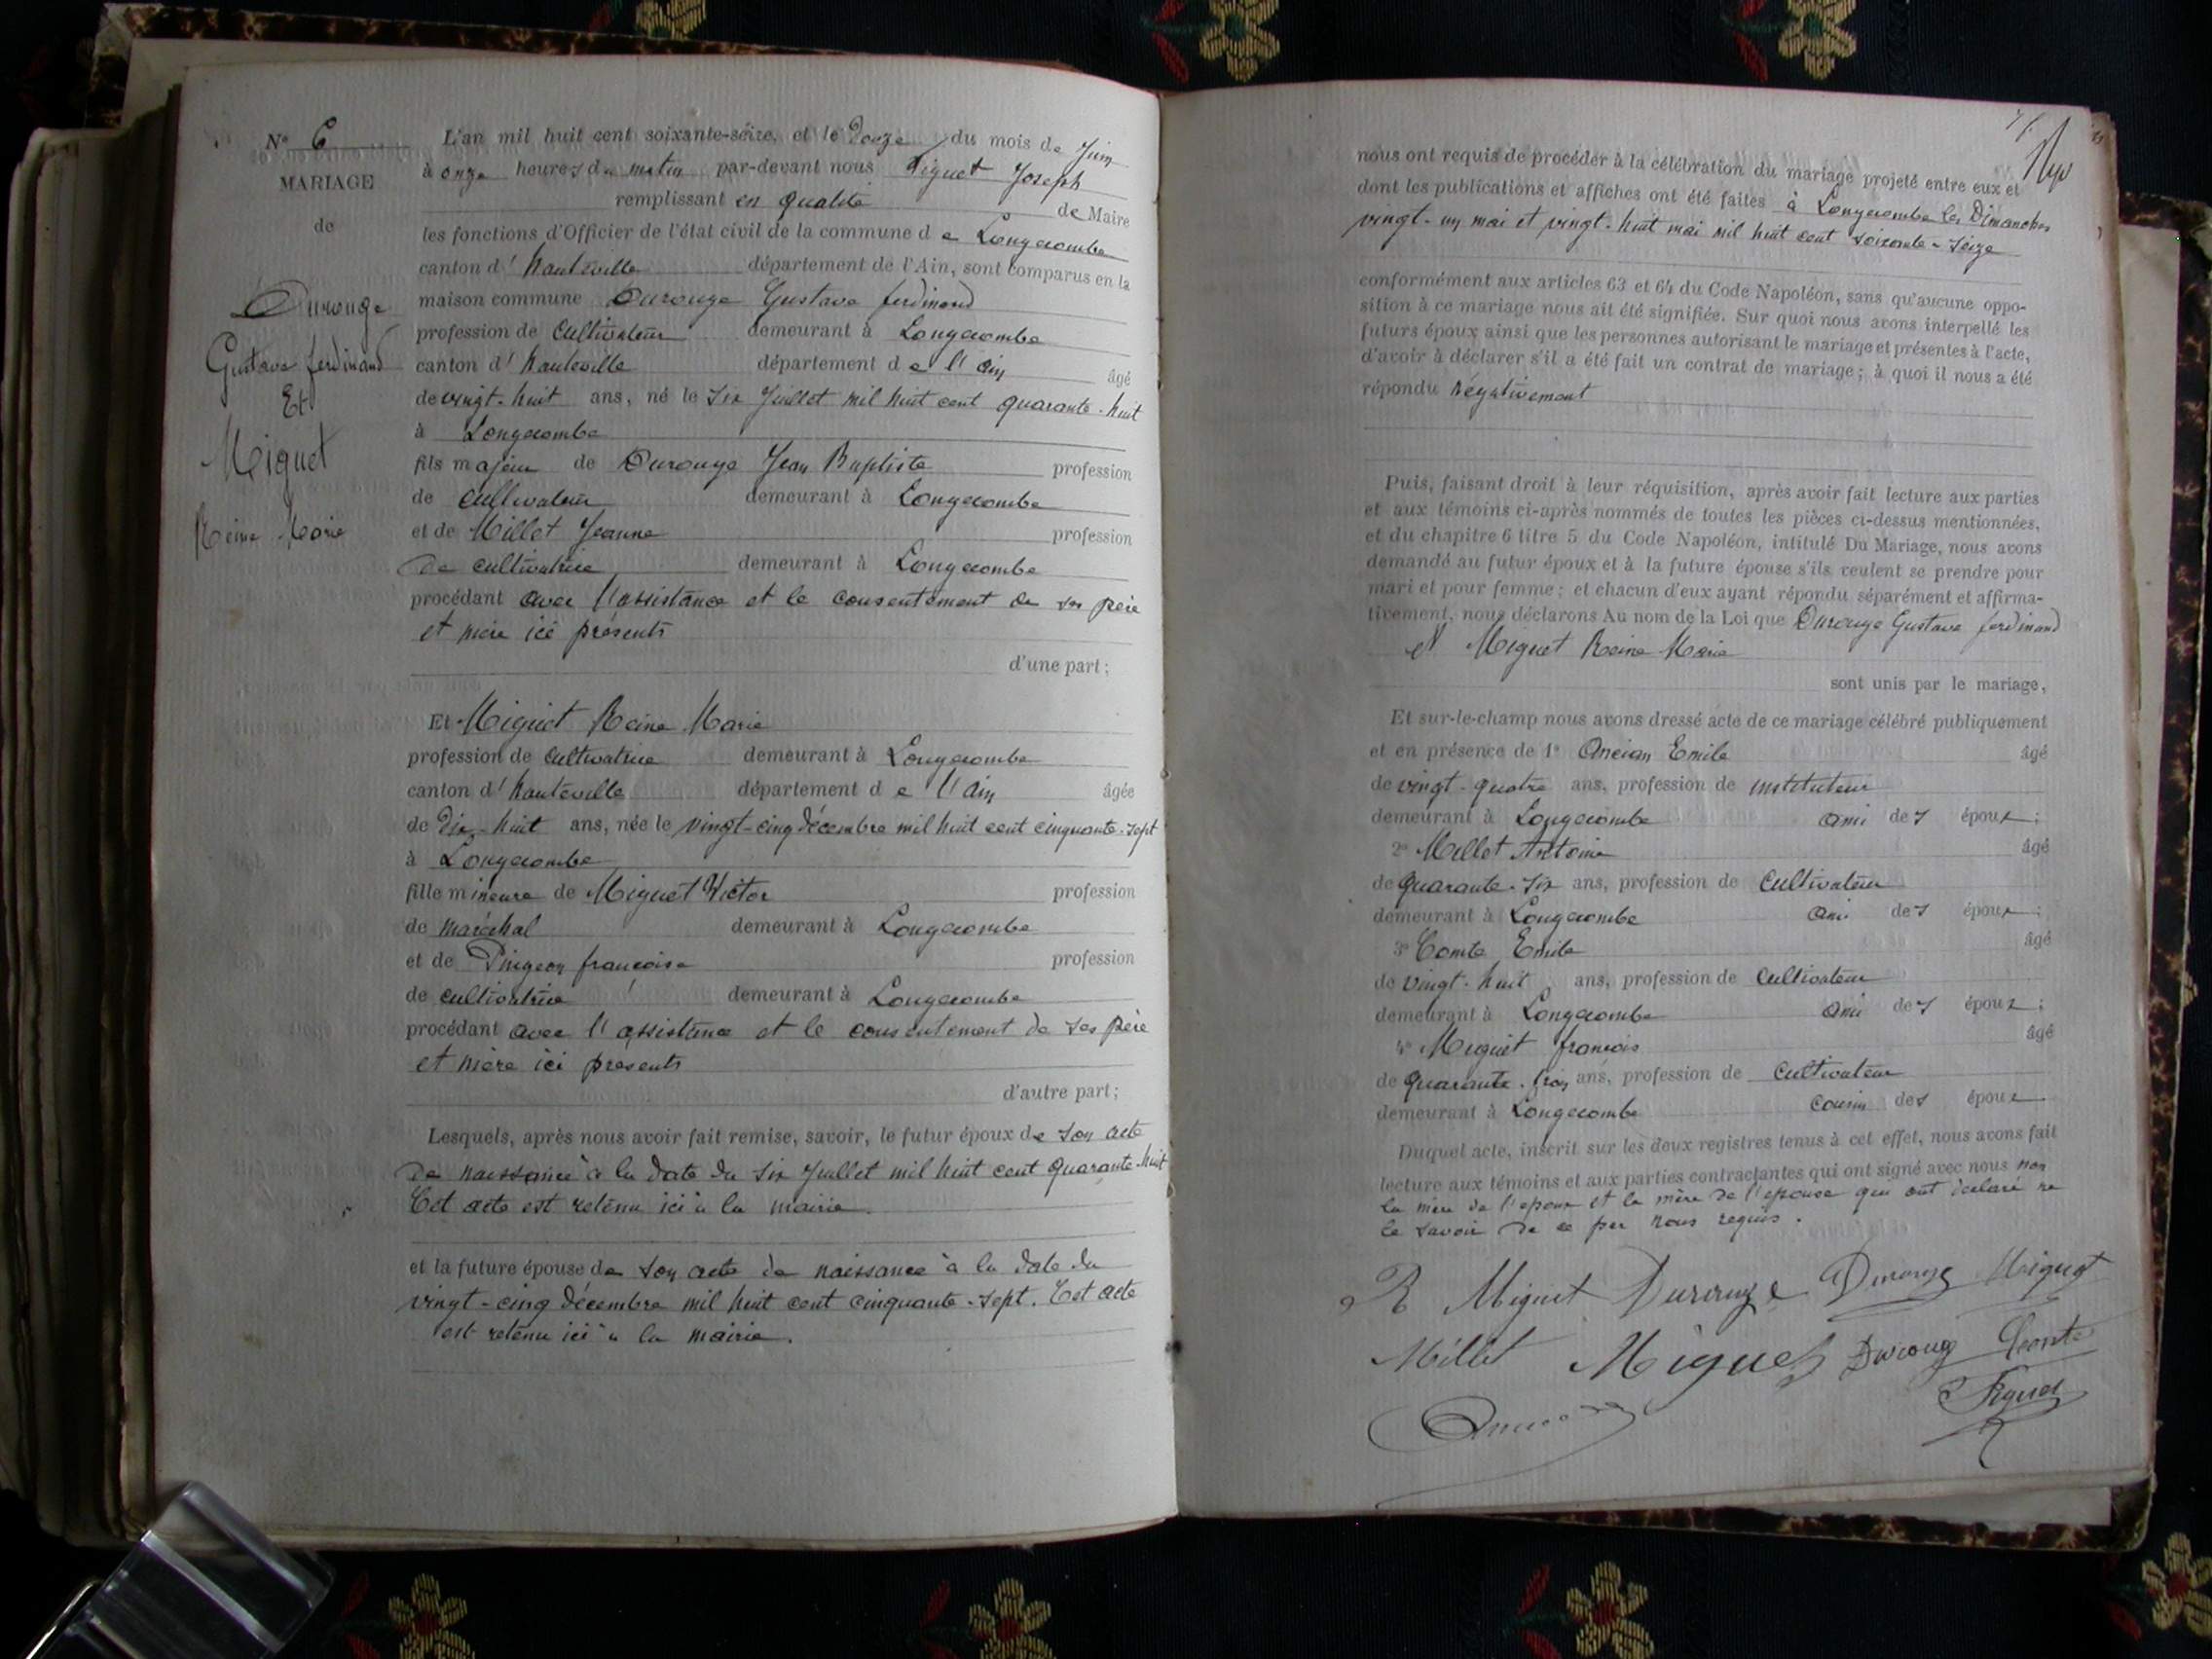 N° 6
MARIAGE
de
Durouge
Gustave ferdinand
Et
Miguet
Reine Marie
L'an mil huit cent soixante-seize, et le Douze du mois de Juin
à onze heures du matin par-devant nous Figuet Joseph
remplissant en qualité de Maire
les fonctions d'Officier de l'état civil de la commune de Longecombe
canton d'hauteville département de l'Ain, sont comparus en la
maison commune Durouge Gustave ferdinand
profession de Cultivateur demeurant à Longecombe
canton d'hauteville département de l'ain âgé
de vingt-huit ans, né le six Juillet mil huit cent quarante-huit
à Longecombe
fils majeur de Durouge Jean Baptiste profession
de cultivateur demeurant à Longecombe
et de Millet Jeanne profession
de cultivatrice demeurant à Longecombe
procédant avec l'assistance et le consentement de ses père
et mère ici présents
d'une part;
Et Miguet Reine Marie
profession de cultivatrice demeurant à Longecombe
canton d'hauteville département de l'ain âgée
de Dix-huit ans, née le vingt-cinq décembre mil huit cent cinquante-sept
à Longecombe
fille mineure de Miguet Victor profession
de maréchal demeurant à Longecombe
et de Pingeon françoise profession
de cultivatrice demeurant à Longecombe
procédant avec l'assistance et le consentement de ses père
et mère ici présents
d'autre part;
Lesquels, après nous avoir fait remise, savoir, le futur époux de son acte
de naissance à la date du six Juillet mil huit cent quarante-huit
Cet acte est retenu ici à la mairie.
et la future épouse de son acte de naissance à la date du
vingt-cinq décembre mil huit cent cinquante-sept. Cet acte
est retenu ici à la mairie.
nous ont requis de procéder à la célébration du mariage projeté entre eux et
dont les publications et affiches ont été faites à Longecombe les Dimanches
vingt-un mai et vingt-huit mai mil huit cent soixante-seize
conformément aux articles 63 et 64 du Code Napoléon, sans qu'aucune oppo-
sition à ce mariage nous ait été signifiée. Sur quoi nous avons interpellé les
futurs époux ainsi que les personnes autorisant le mariage et présentes à l'acte,
d'avoir à déclarer s'il a été fait un contrat de mariage; à quoi il nous a été
répondu négativement
Puis, faisant droit à leur réquisition, après avoir fait lecture aux parties
et aux témoins ci-après nommés de toutes les pièces ci-dessus mentionnées,
et du chapitre 6 titre 5 du Code Napoléon, intitulé Du Mariage, nous avons
demandé au futur époux et à la future épouse s'ils veulent se prendre pour
mari et pour femme; et chacun d'eux ayant répondu séparément et affirma-
tivement, nous déclarons Au nom de la Loi que Durouge Gustave ferdinand
et Miguet Reine Marie
sont unis par le mariage,
Et sur-le-champ nous avons dressé acte de ce mariage célébré publiquement
et en présence de 1° Ancian Emile âgé
de vingt-quatre ans, profession de instituteur
demeurant à Longecombe ami des époux;
2° Millet Antoine âgé
de quarante-six ans, profession de Cultivateur
demeurant à Longecombe ami des époux;
3° Comte Emile âgé
de vingt-huit ans, profession de Cultivateur
demeurant à Longecombe ami des époux;
4° Miguet françois âgé
de quarante-trois ans, profession de Cultivateur
demeurant à Longecombe cousin des époux
Duquel acte, inscrit sur les deux registres tenus à cet effet, nous avons fait
lecture aux témoins et aux parties contractantes qui ont signé avec nous non
la mère de l'époux et la mère de l'épouse qui ont déclaré ne
le savoir de ce par nous requis.
R Miguet Durouge Durouge Miguet
Millet Miguet Durouge Comte
Figuet